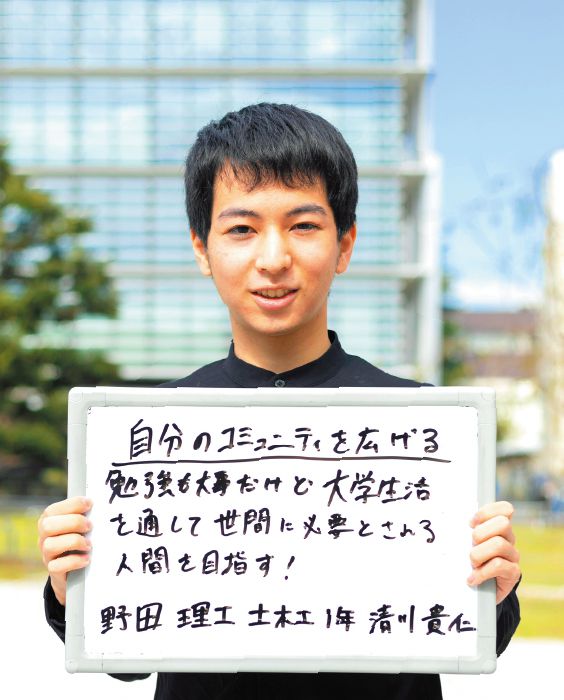 自分のコミュニティを広げる
勉強も大事だけど 大学生活
を通して世間に必要とされる
人間を目指す!
野田 理工 土木工 1年 清川貴仁